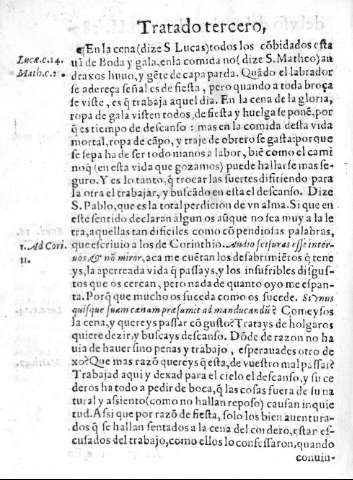 Tratado tercero,
¶En la cena (dize S Lucas) todos los cõbidados esta
Lucæ.c.14.
uã de Boda y gala, en la comida no (dize S. Matheo) an
Math.c.2
draxos huuo, y gẽte de capa parda. Quãdo el labrador
se adereça señal es de fiesta, pero quando a toda broça
se viste, es q̃ trabaja aquel dia. En la cena de la gloria,
ropa de gala visten todos, de fiesta y huelga se ponẽ, por
q̃ es tiempo de descanso: mas en la comida desta vida
mortal, ropa de cãpo, y traje de obrero se gasta: porque
se sepa ha de ser todo manos a labor, biẽ como el cami
no q̃ (en esta vida que gozamos) puede hallarse mas se-
guro. Y es lo tanto, q̃ trocar las suertes difiriendo para
la otra el trabajar, y buscãdo en esta el descanso. Dize
S. Pablo, que es la total perdicion de vn alma. Si que en
este sentido declaran algunos aũque no sea muy a la le
tra, aquellas tan dificiles como cõpendiosas palabras,
1. Ad Cori.
que escriuio a los de Corinthio. Audio scisuras esse inter
11.
uos, & nõ miror, aca me cuẽtan los desabrimiẽtos q̃ tene
ys, la aperreada vida q̃ passays, y los insufribles disgus-
tos que os cercan, pero nada de quanto oyo me espan-
ta. Porq̃ que mucho os suceda como os sucede. Si vnus
quisque suam cænam præsumit ad manducandũ? Comeysos
la cena, y quereys passar cõ gusto? Tratays de holgaros
quiere dezir, y buscays descanso. Dõde de razon no ha
uia de hauer sino penas y trabajo, esperauades otro de
xo? Que mas razõ quereys q̃ esta, de vuestro mal passar?
Trabajad aqui y dexad para el cielo el descanso, y su ce
deros ha todo a pedir de boca, q̃ las cosas fuera de su na
tural y assiento (como no hallan reposo) causan inquie
tud. Assi que por razõ de fiesta, solo los bien auentura-
dos q̃ se hallan sentados a la cena del cordero, estan es-
cusados del trabajo, como ellos lo confessaron, quando
conuin-